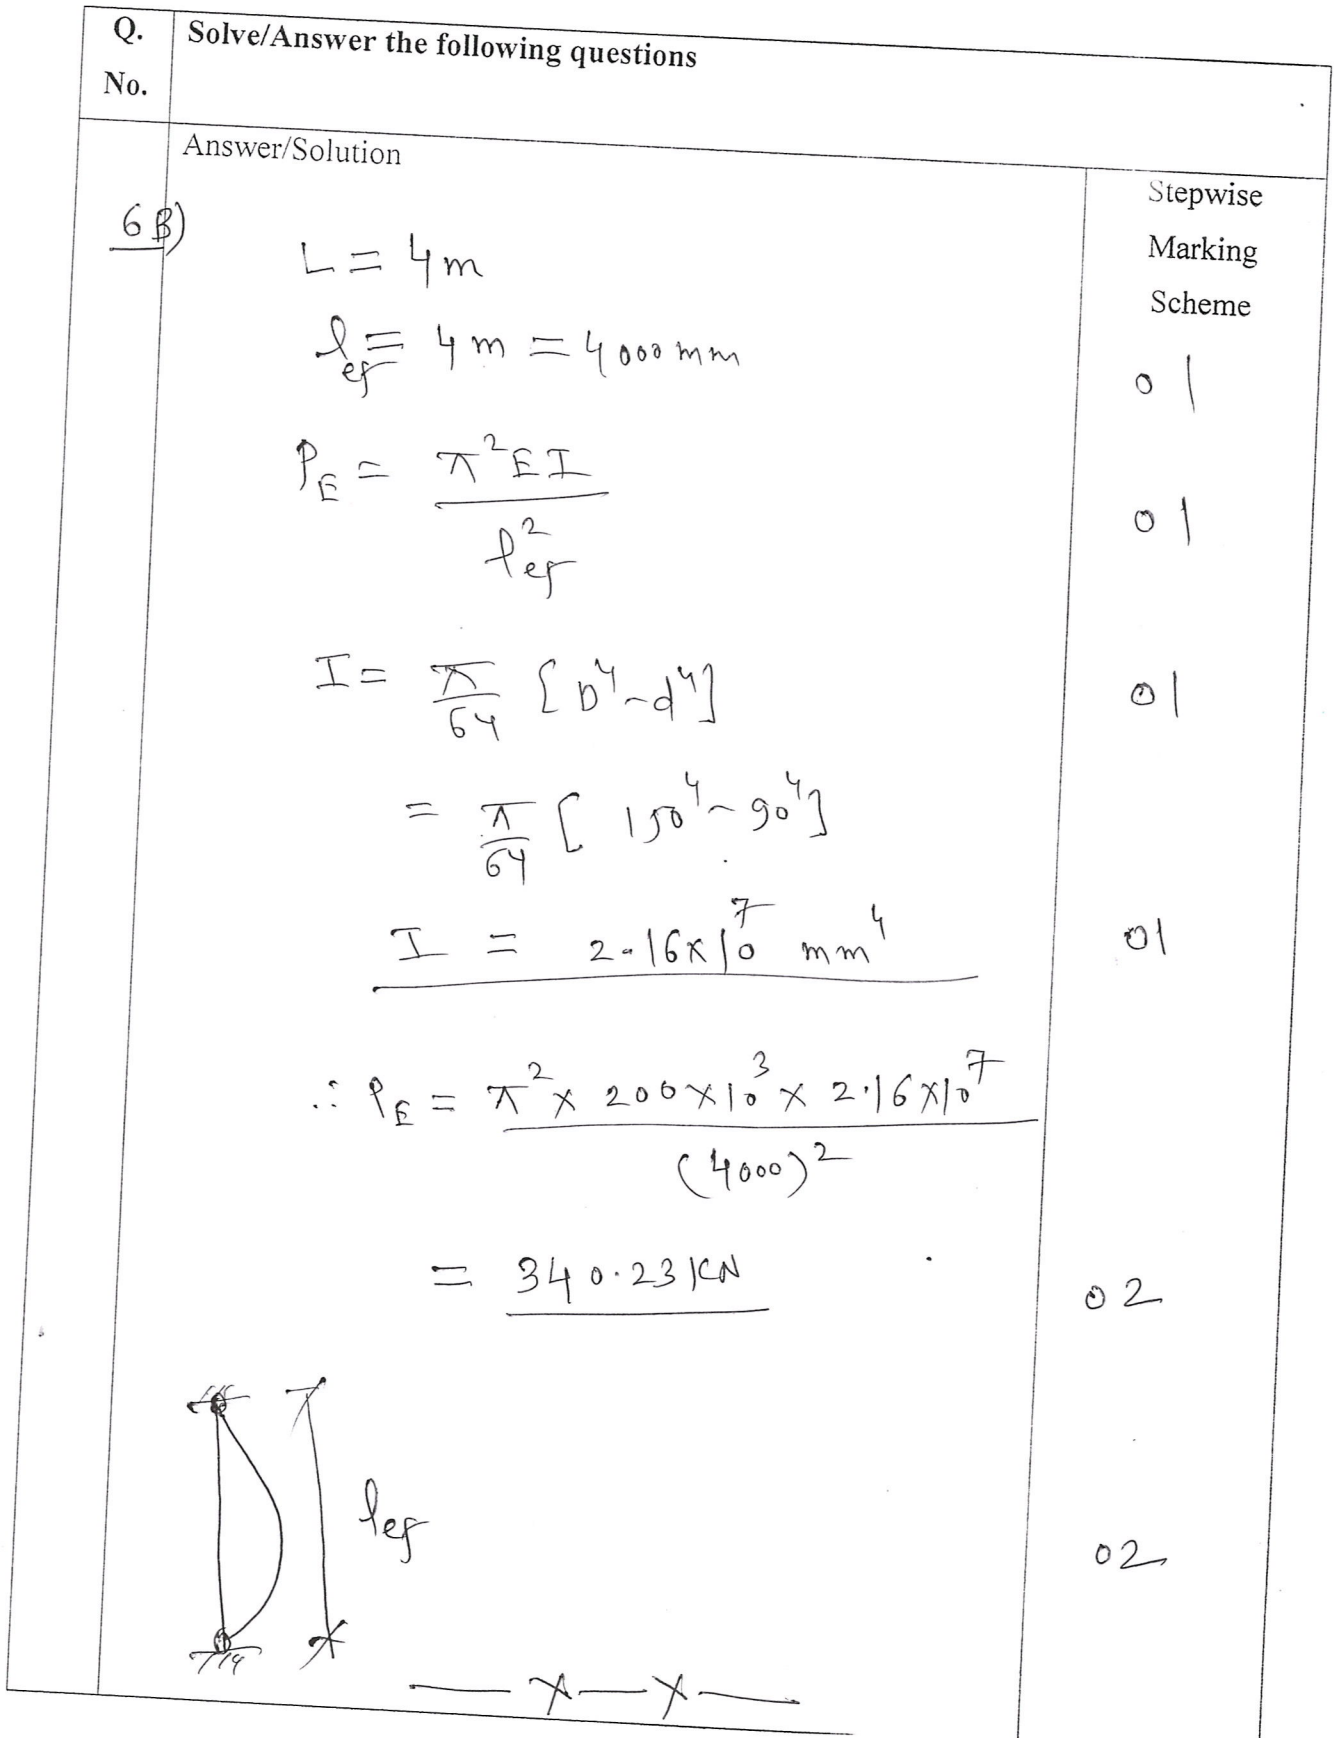 Q. No.
Solve/Answer the following questions
Answer/Solution
Stepwise
Marking
Scheme
6 B)
L = 4m
lef = 4m = 4000mm
01
P_E = π²EI / lef²
01
I = π/64 [D⁴-d⁴]
01
= π/64 [150⁴-90⁴]
I = 2.16x10⁷ mm⁴
01
∴ P_E = π² x 200x10³ x 2.16x10⁷ / (4000)²
= 340.23 KN
02
lef
02
—x—x—